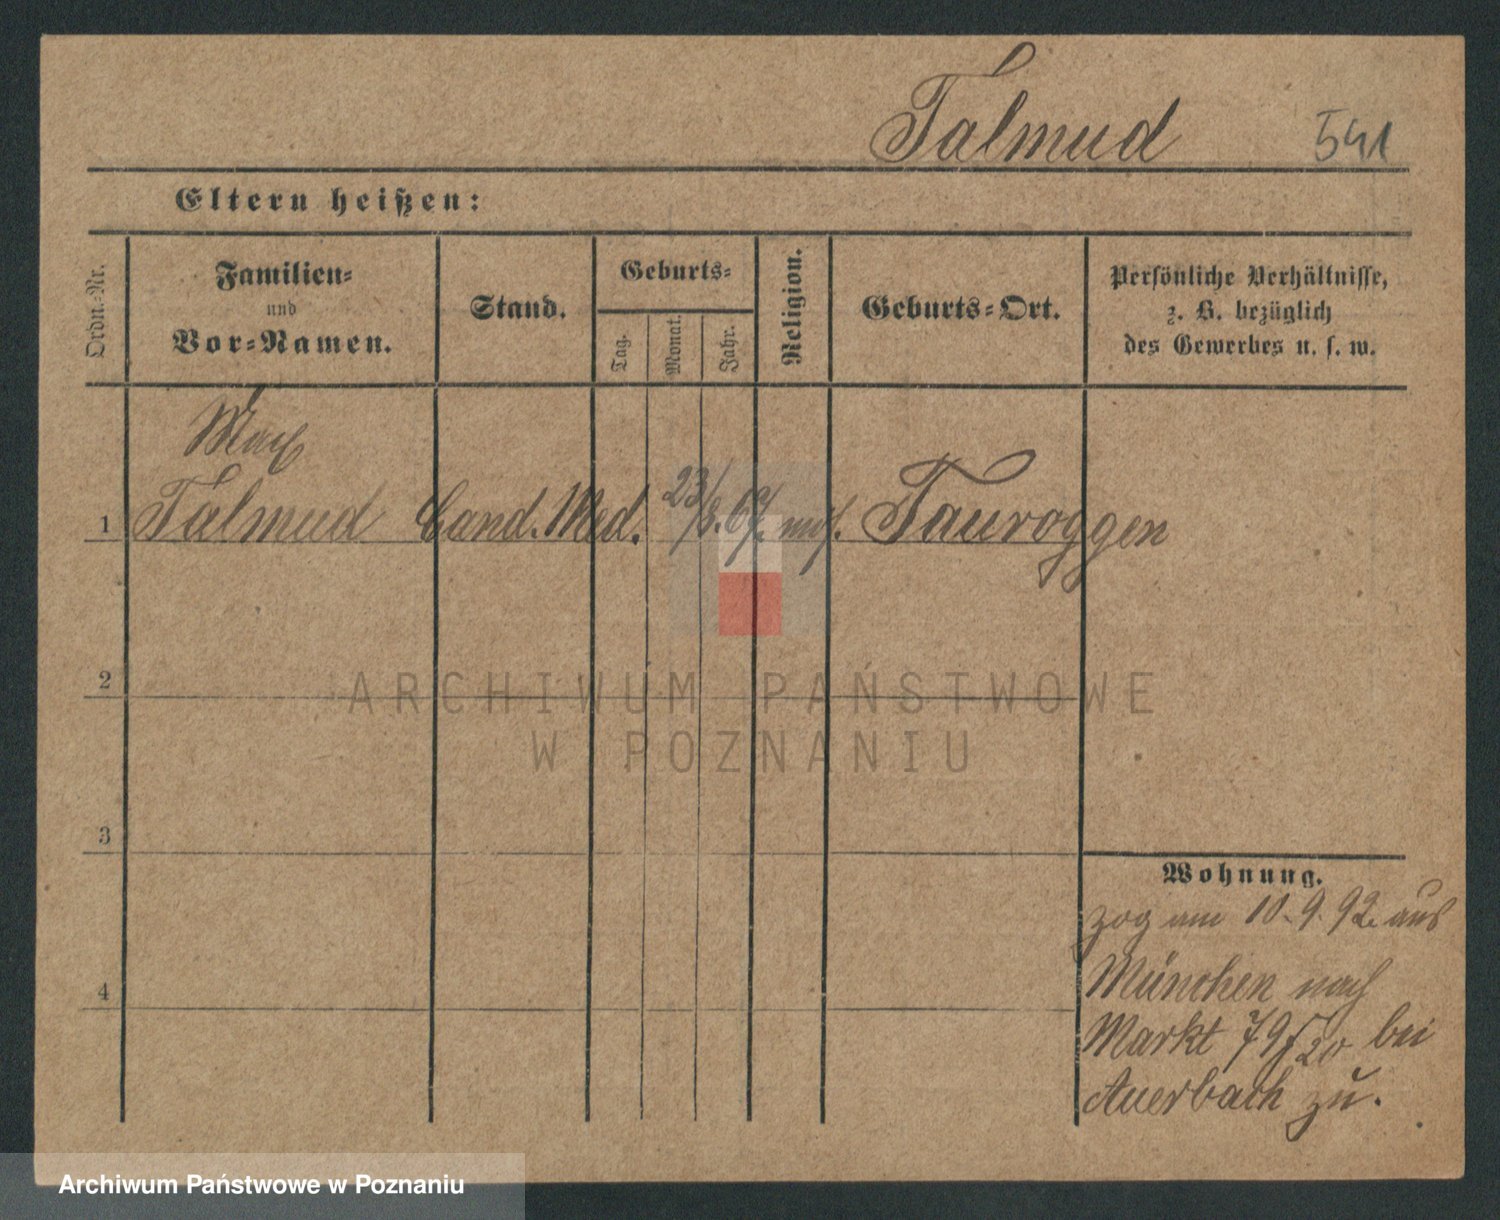 Talmud 541
Eltern heißen:
Ordn.-Nr.
Familien-
und
Vor-Namen.
Stand.
Geburts-
Tag.
Monat.
Jahr.
Religion.
Geburts-Ort.
Persönliche Verhältnisse,
z. B. bezüglich
des Gewerbes u. s. w.
Max
1 Talmud Cand. Med. 23/8. 67. mos. Tauroggen
2
3
4
Wohnung.
zog am 10.9.92. aus
München nach
Markt 79/20 bei
Auerbach zu.
ARCHIWUM PAŃSTWOWE
W POZNANIU
Archiwum Państwowe w Poznaniu